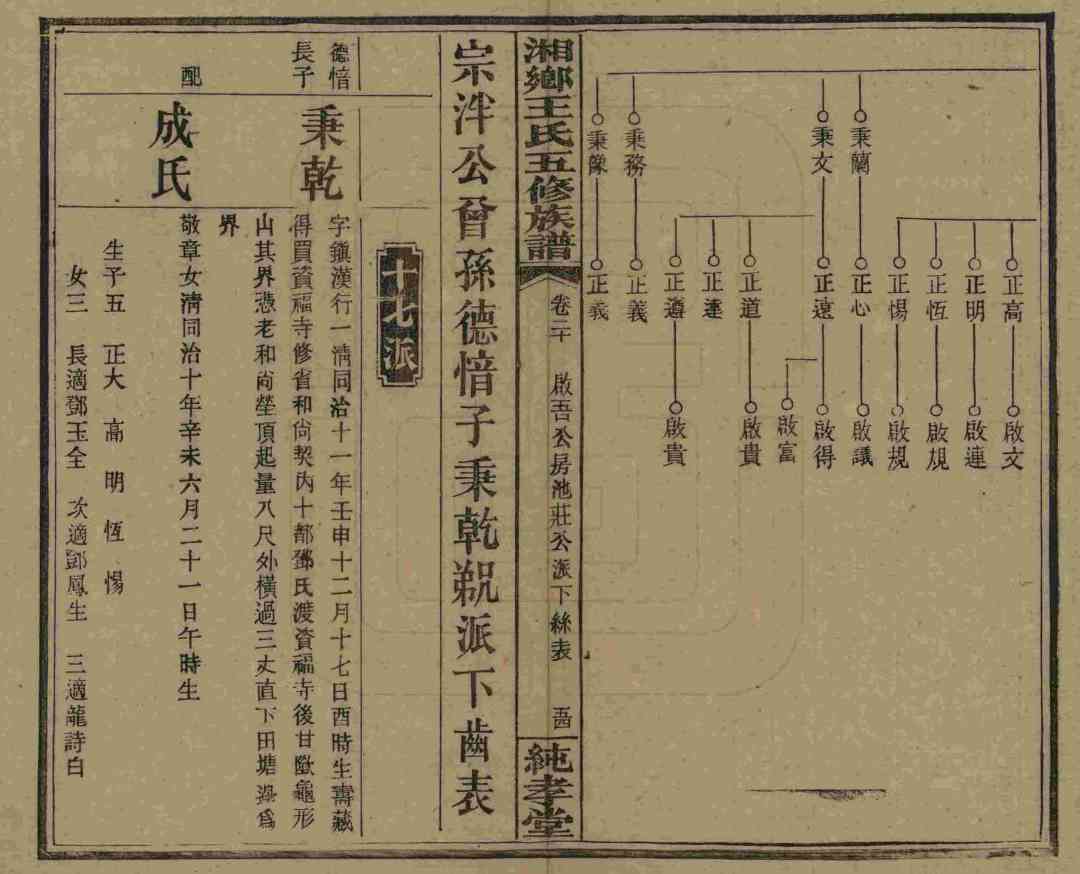 秉蘭
秉文
秉務
秉像
正高
正明
正恆
正惕
正心
正遠
正道
正達
正遵
正義
正義
啟文
啟連
啟規
啟規
啟議
啟得
啟富
啟貴
啟貴
湘鄉王氏五修族譜
卷二十
啟吾公房池莊公派下絲表
純孝堂
宗泮公曾孫德愔子秉乾規派下齒表
十七派
德愔
長子
秉乾
字鎮漢行一清同治十一年壬申十二月十七日酉時生壽藏
得買資福寺修省和尚契內十都鄧氏渡資福寺後甘歐龜形
山其界憑老和尚塋頂起量八尺外橫過三丈直下田塘為
界
配
成氏
敬章女清同治十年辛未六月二十一日午時生
生子五 正大 高 明 恆 惕
女三 長適鄧玉全 次適鄧鳳生 三適龍詩白